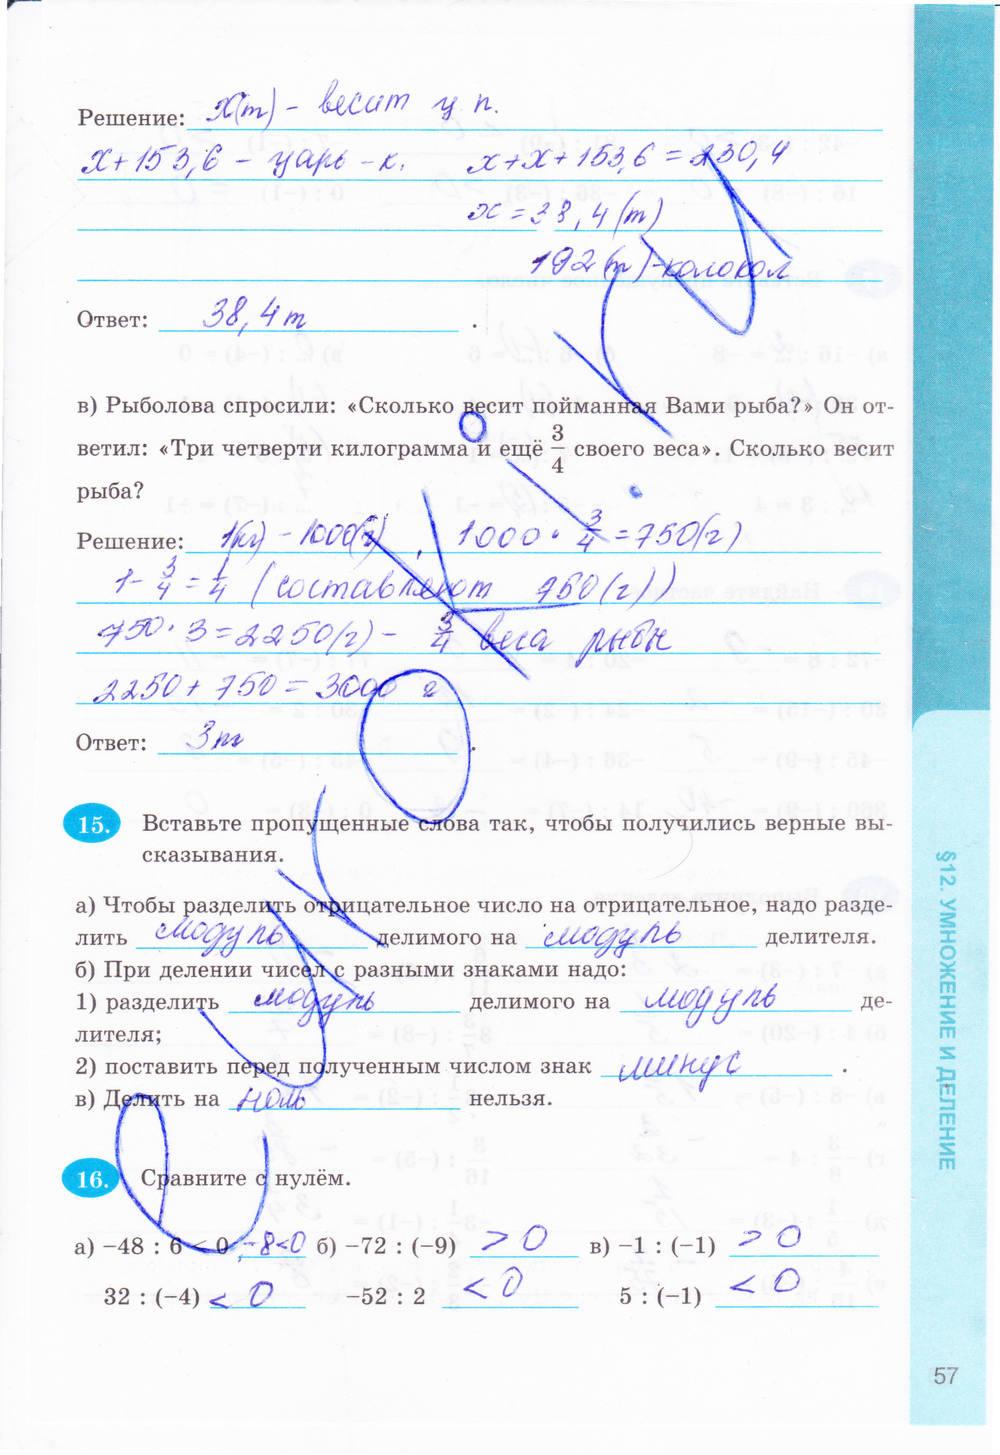 Решение: х(т) – весит ц п.
х+153,6 – царь – к. х+х+153,6 = 230,4
х = 38,4 (т)
192 (т) – колокол
Ответ: 38,4 т .
в) Рыболова спросили: «Сколько весит пойманная Вами рыба?» Он от-
ветил: «Три четверти килограмма и ещё 3/4 своего веса». Сколько весит
рыба?
Решение: 1(кг) – 1000(г) , 1000 · 3/4 = 750(г)
1 - 3/4 = 1/4 (составляют 750 (г))
750 · 3 = 2250(г) – 3/4 веса рыбы
2250 + 750 = 3000 г
Ответ: 3 кг .
15. Вставьте пропущенные слова так, чтобы получились верные вы-
сказывания.
а) Чтобы разделить отрицательное число на отрицательное, надо разде-
лить модуль делимого на модуль делителя.
б) При делении чисел с разными знаками надо:
1) разделить модуль делимого на модуль де-
лителя;
2) поставить перед полученным числом знак минус .
в) Делить на ноль нельзя.
16. Сравните с нулём.
а) −48 : 6 < 0 ; -8<0 б) −72 : (−9) > 0 в) −1 : (−1) > 0
32 : (−4) < 0 −52 : 2 < 0 5 : (−1) < 0
§12. УМНОЖЕНИЕ И ДЕЛЕНИЕ
57